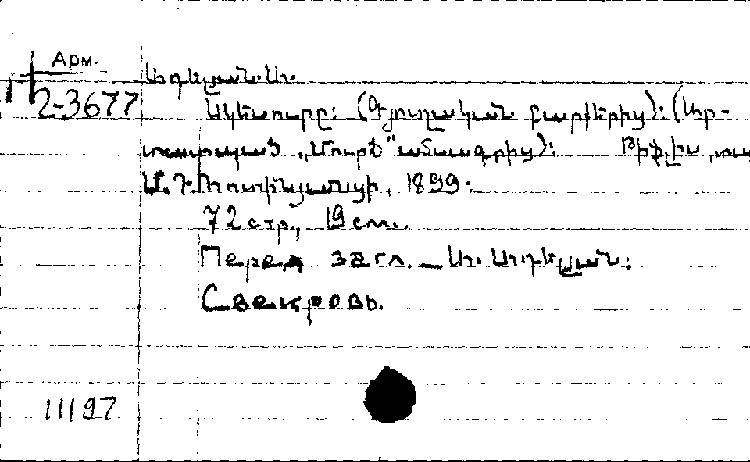 Арм.
2-3677
Ադելյան. Ա.
Սկեսուրը: (Գյուղական բարքերից): (Ար-
տատպած „Մուրճ“ ամսագրից): Թիֆլիս, տպ.
Մ. Դ. Ռոտինյանցի, 1899.
72 стр., 19 см.
Перед загл. – Ա. Ադելյան:
Свекровь.
11197